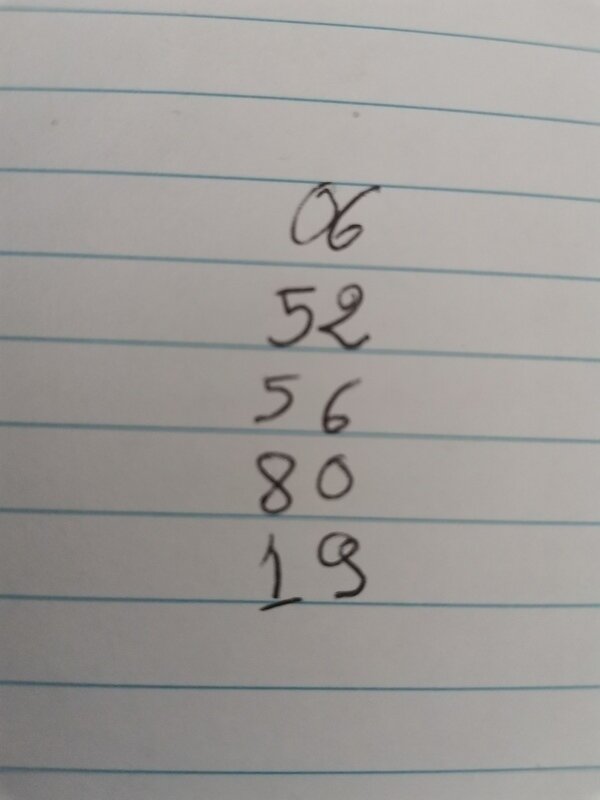 06
52
56
80
19